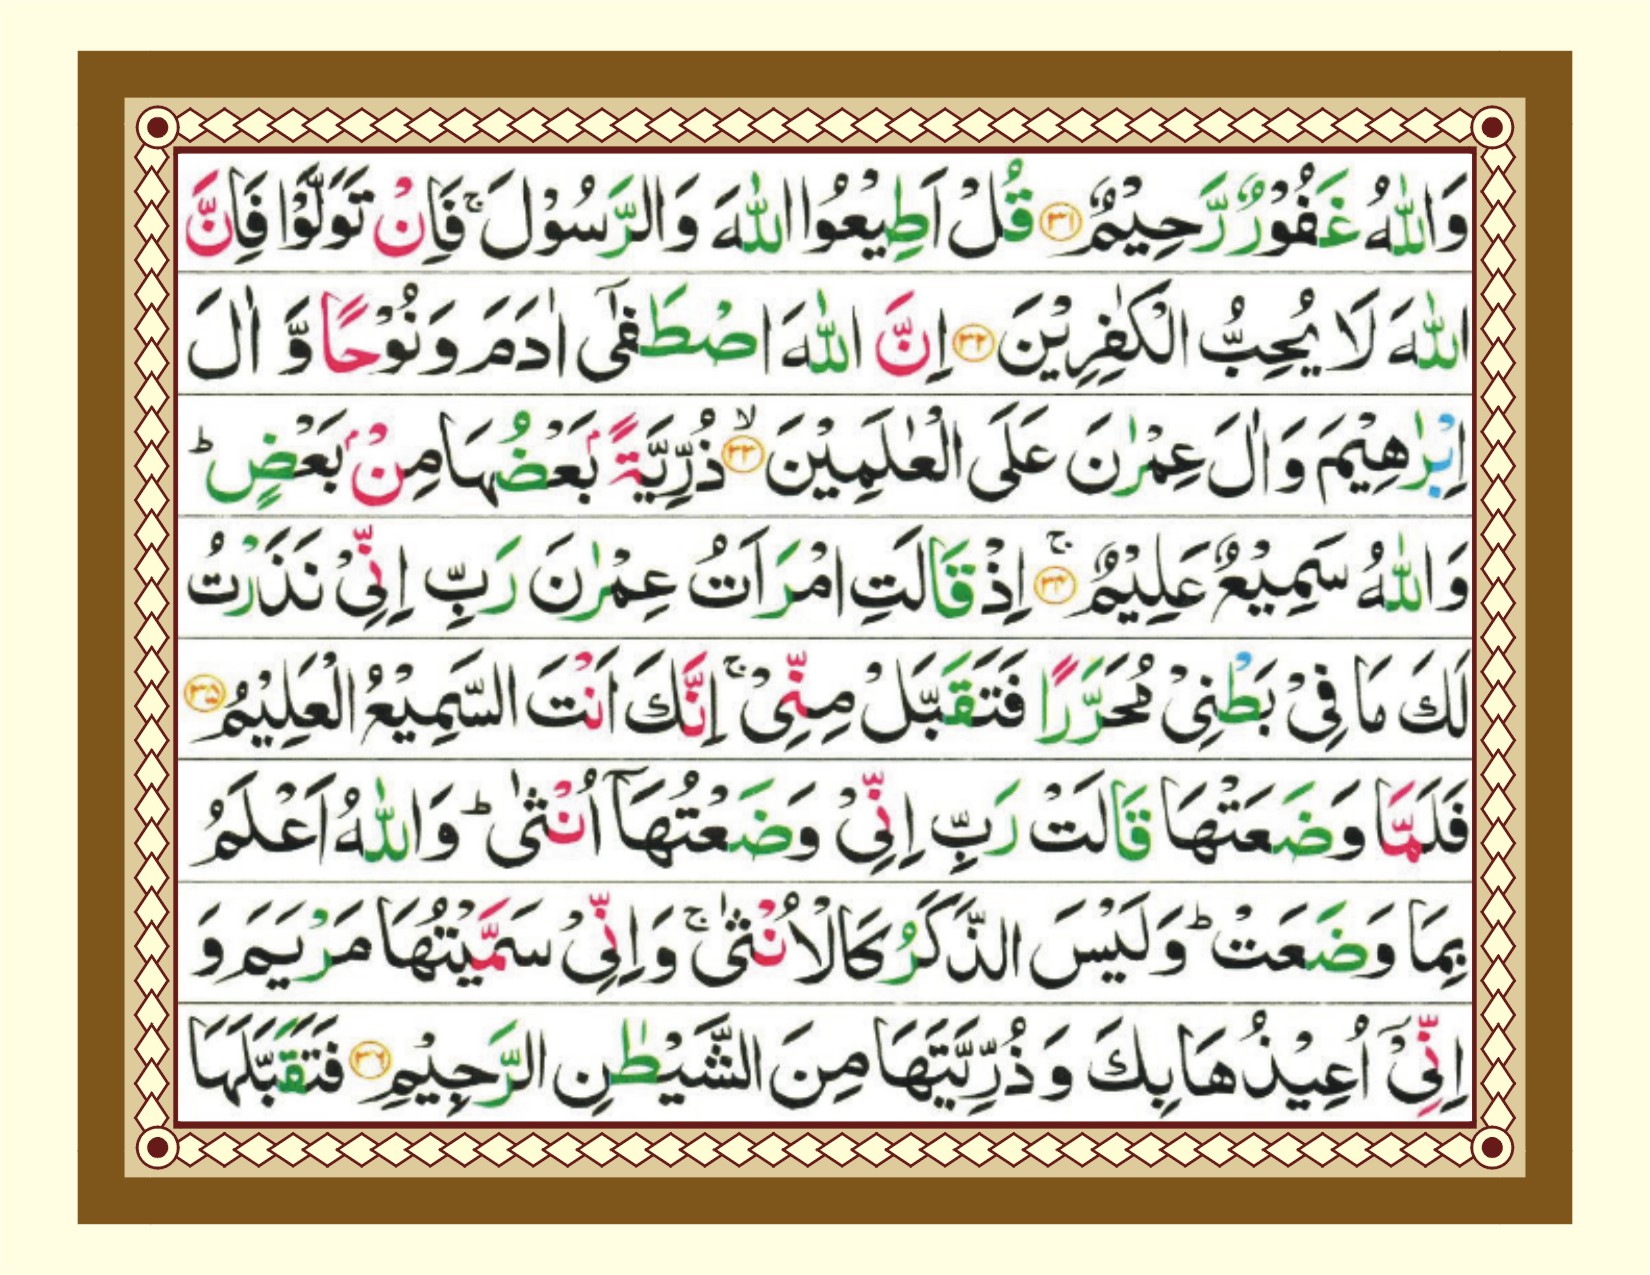 وَاللّٰهُ غَفُوْرٌ رَّحِيْمٌ ۝۳۱ قُلْ اَطِيْعُوا اللّٰهَ وَالرَّسُوْلَ ۚ فَاِنْ تَوَلَّوْا فَاِنَّ
اللّٰهَ لَا يُحِبُّ الْكٰفِرِيْنَ ۝۳۲ اِنَّ اللّٰهَ اصْطَفٰٓى اٰدَمَ وَنُوْحًا وَّ اٰلَ
اِبْرٰهِيْمَ وَاٰلَ عِمْرٰنَ عَلَى الْعٰلَمِيْنَ ۝۳۳ۙ ذُرِّيَّةًۢ بَعْضُهَا مِنْۢ بَعْضٍ ؕ
وَاللّٰهُ سَمِيْعٌ عَلِيْمٌ ۝۳۴ۚ اِذْ قَالَتِ امْرَاَتُ عِمْرٰنَ رَبِّ اِنِّىْ نَذَرْتُ
لَكَ مَا فِىْ بَطْنِىْ مُحَرَّرًا فَتَقَبَّلْ مِنِّىْ ۚ اِنَّكَ اَنْتَ السَّمِيْعُ الْعَلِيْمُ ۝۳۵
فَلَمَّا وَضَعَتْهَا قَالَتْ رَبِّ اِنِّىْ وَضَعْتُهَاۤ اُنْثٰى ؕ وَاللّٰهُ اَعْلَمُ
بِمَا وَضَعَتْ ؕ وَلَيْسَ الذَّكَرُ كَالْاُنْثٰى ۚ وَاِنِّىْ سَمَّيْتُهَا مَرْيَمَ وَ
اِنِّىْۤ اُعِيْذُهَا بِكَ وَ ذُرِّيَّتَهَا مِنَ الشَّيْطٰنِ الرَّجِيْمِ ۝۳۶ فَتَقَبَّلَهَا